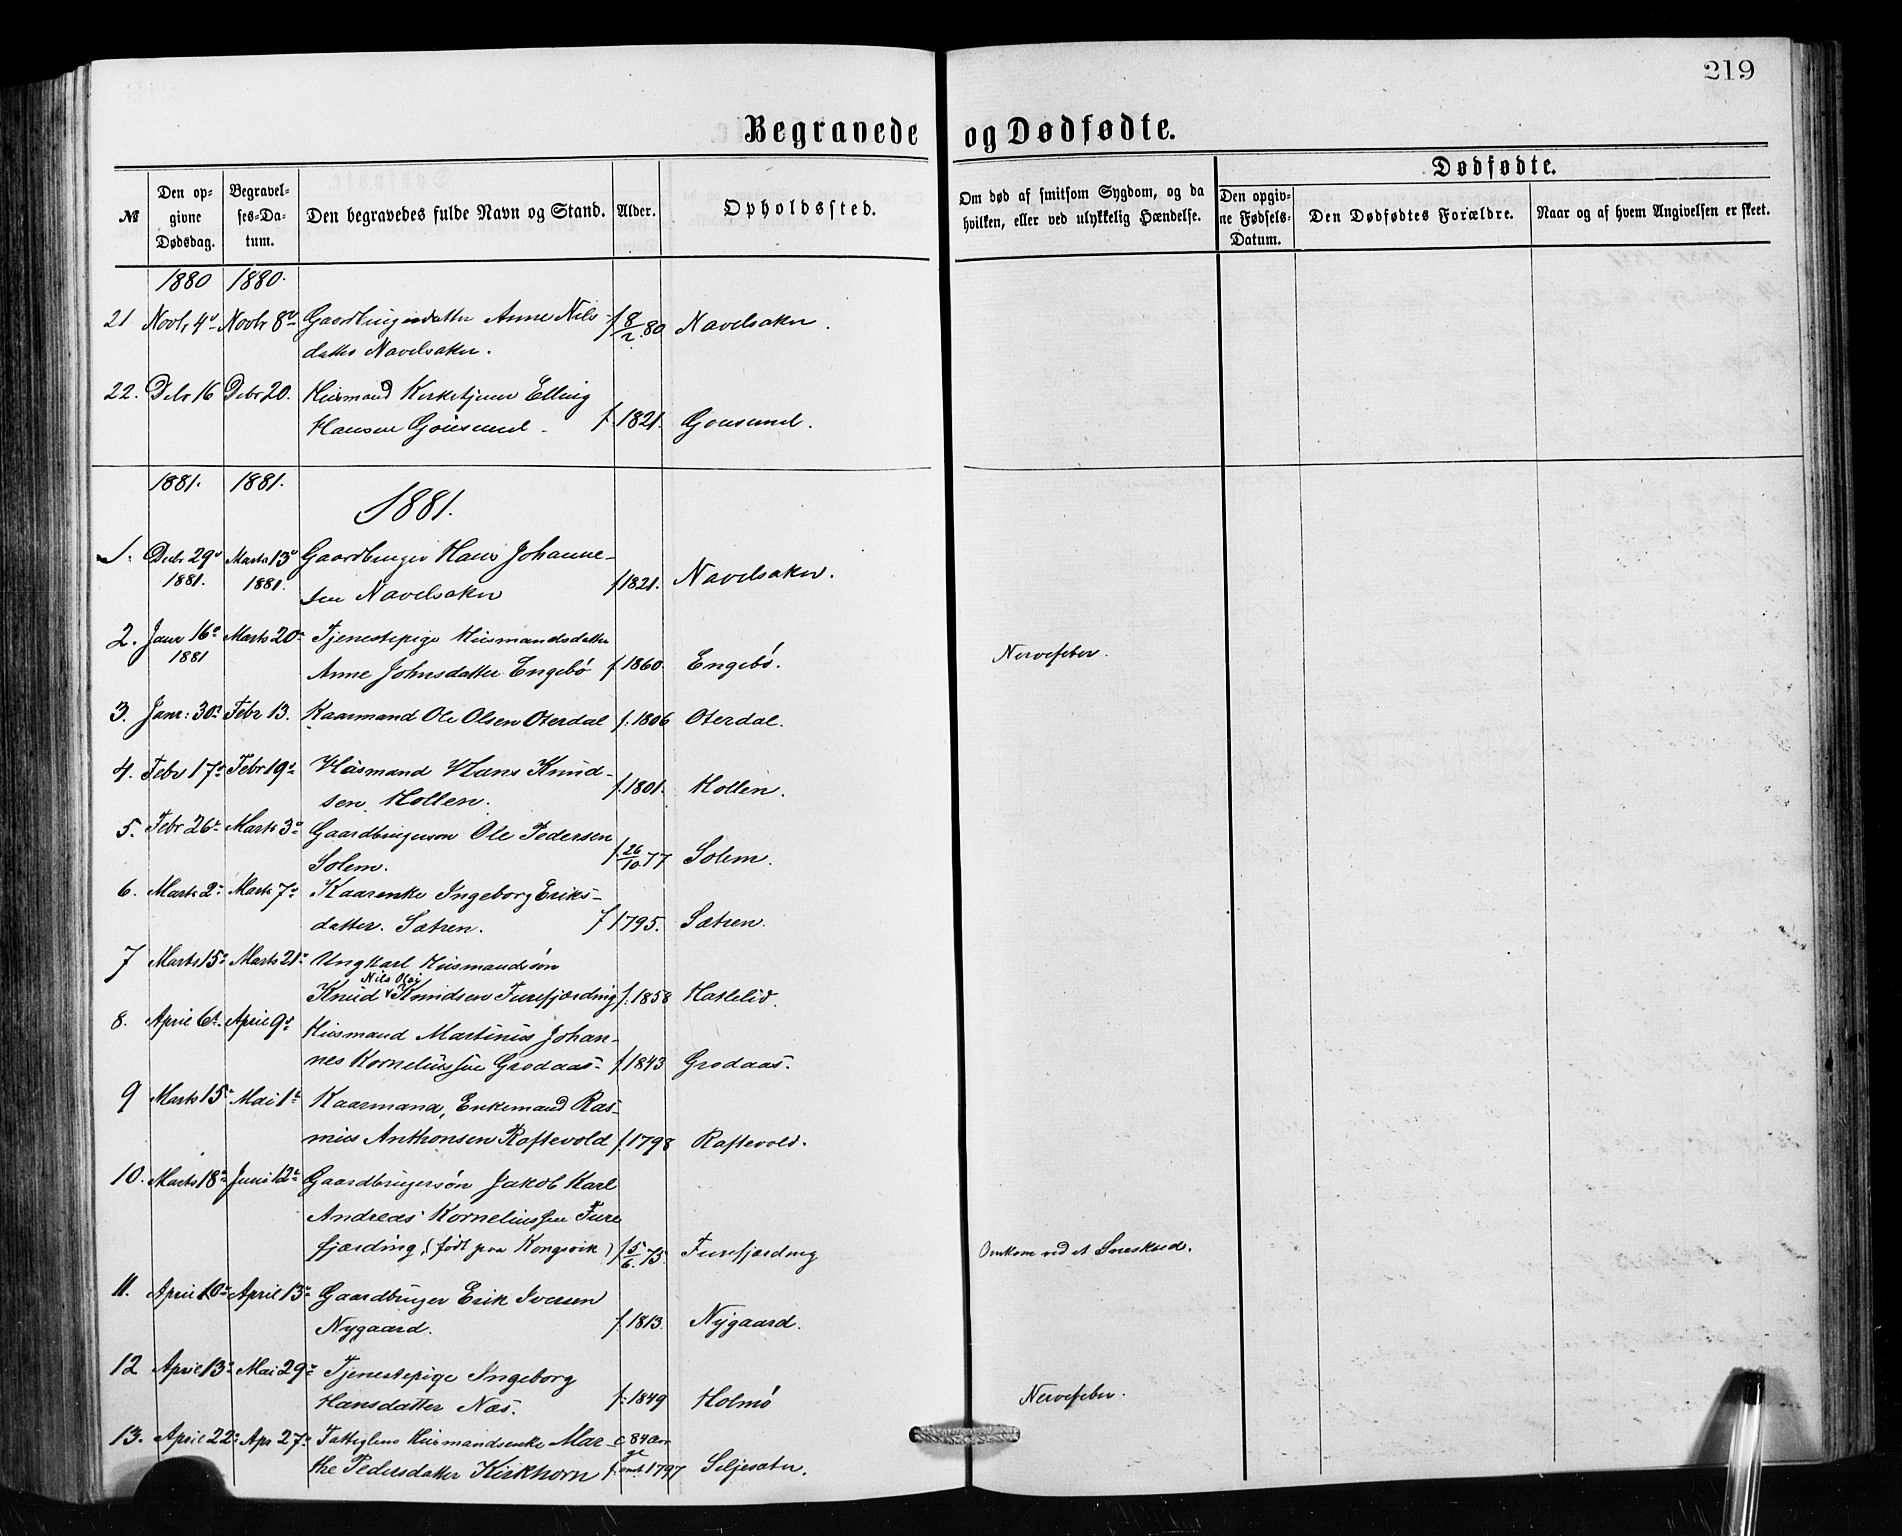 219
Begravede og Dødfødte.
№
Den opgivne Dødsdag.
Begravelses-Datum.
Den begravedes fulde Navn og Stand.
Alder.
Opholdssted.
Om død af smitsom Sygdom, og da hvilken, eller ved ulykkelig Hændelse.
Dødfødte.
Den opgivne Fødsels-Datum.
Den Dødfødtes Forældre.
Naar og af hvem Angivelsen er skeet.
1880 1880.
21 Novbr 4de Novbr 8de Gaardbrugerdatter Anne Nils- f 8/2 80 Navelsaker.
datter Navelsaker.
22. Debr 16 Debr 20. Huusmand Kirketjener Elling
Hansen Gousund. f. 1821. Gousund.
1881. 1881.
1881.
1. Decbr 29de Marts 13de Gaardbruger Hans Johanne-
1881. 1881. sen Navelsaker f 1821. Navelsaker.
2. Janr 16de Marts 20de Tjenestepige Huusmandsdatter
1881 Anne Johnsdatter Engebø f. 1860. Engebø. Nervefeber.
3. Janr: 30te Febr 13. Kaarmand Ole Olsen Oterdal f. 1806 Oterdal.
4. Febr 17de Febr 19de Huusmand Hans Knud-
sen Hollen. f. 1801. Hollen.
5. Febr 26de Marts 3de Gaardbrugerson Ole Pedersen
Solem. f. 26/10 77 Solem.
6. Marts 2de Marts 7de Kaarenke Ingeborg Eriks-
datter. Sætren. f 1795. Sætren.
7 Marts 15de Marts 21de Ungkarl Huusmandssøn
Nils Olai
Knud Knudsen Furefjærding f. 1858 Hatlelid.
8. April 6te April 9de Huusmand Martinus Johan-
nes Korneliussen Grodaas- f. 1843 Grodaas.
9 Marts 15de Mai 1ste Kaarmand, Enkemand Ras-
mus Anthonsen Raftevold f. 1798 Raftevold.
10. Marts 18de Juni 12te Gaardbrugersøn Jakob Karl
Andreas Korneliussen Fure
fjærding, (født paa Kongsvik) f 5/6. 75. Furefjærding Omkom ved et Sneskred.
11. April 10de April 13de Gaardbruger Erik Iversen
Nygaard. f. 1813. Nygaard.
12 April 13de Mai 29de Tjenestepige Ingeborg
Hansdatter Næs. f. 1849 Holmø Nervefeber.
13. April 22de Apr 27de Fattiglem Huusmandsenke Mar- c. 84 Aar
the Pedersdatter Kirkhorn f. 1797 Seljesæter.